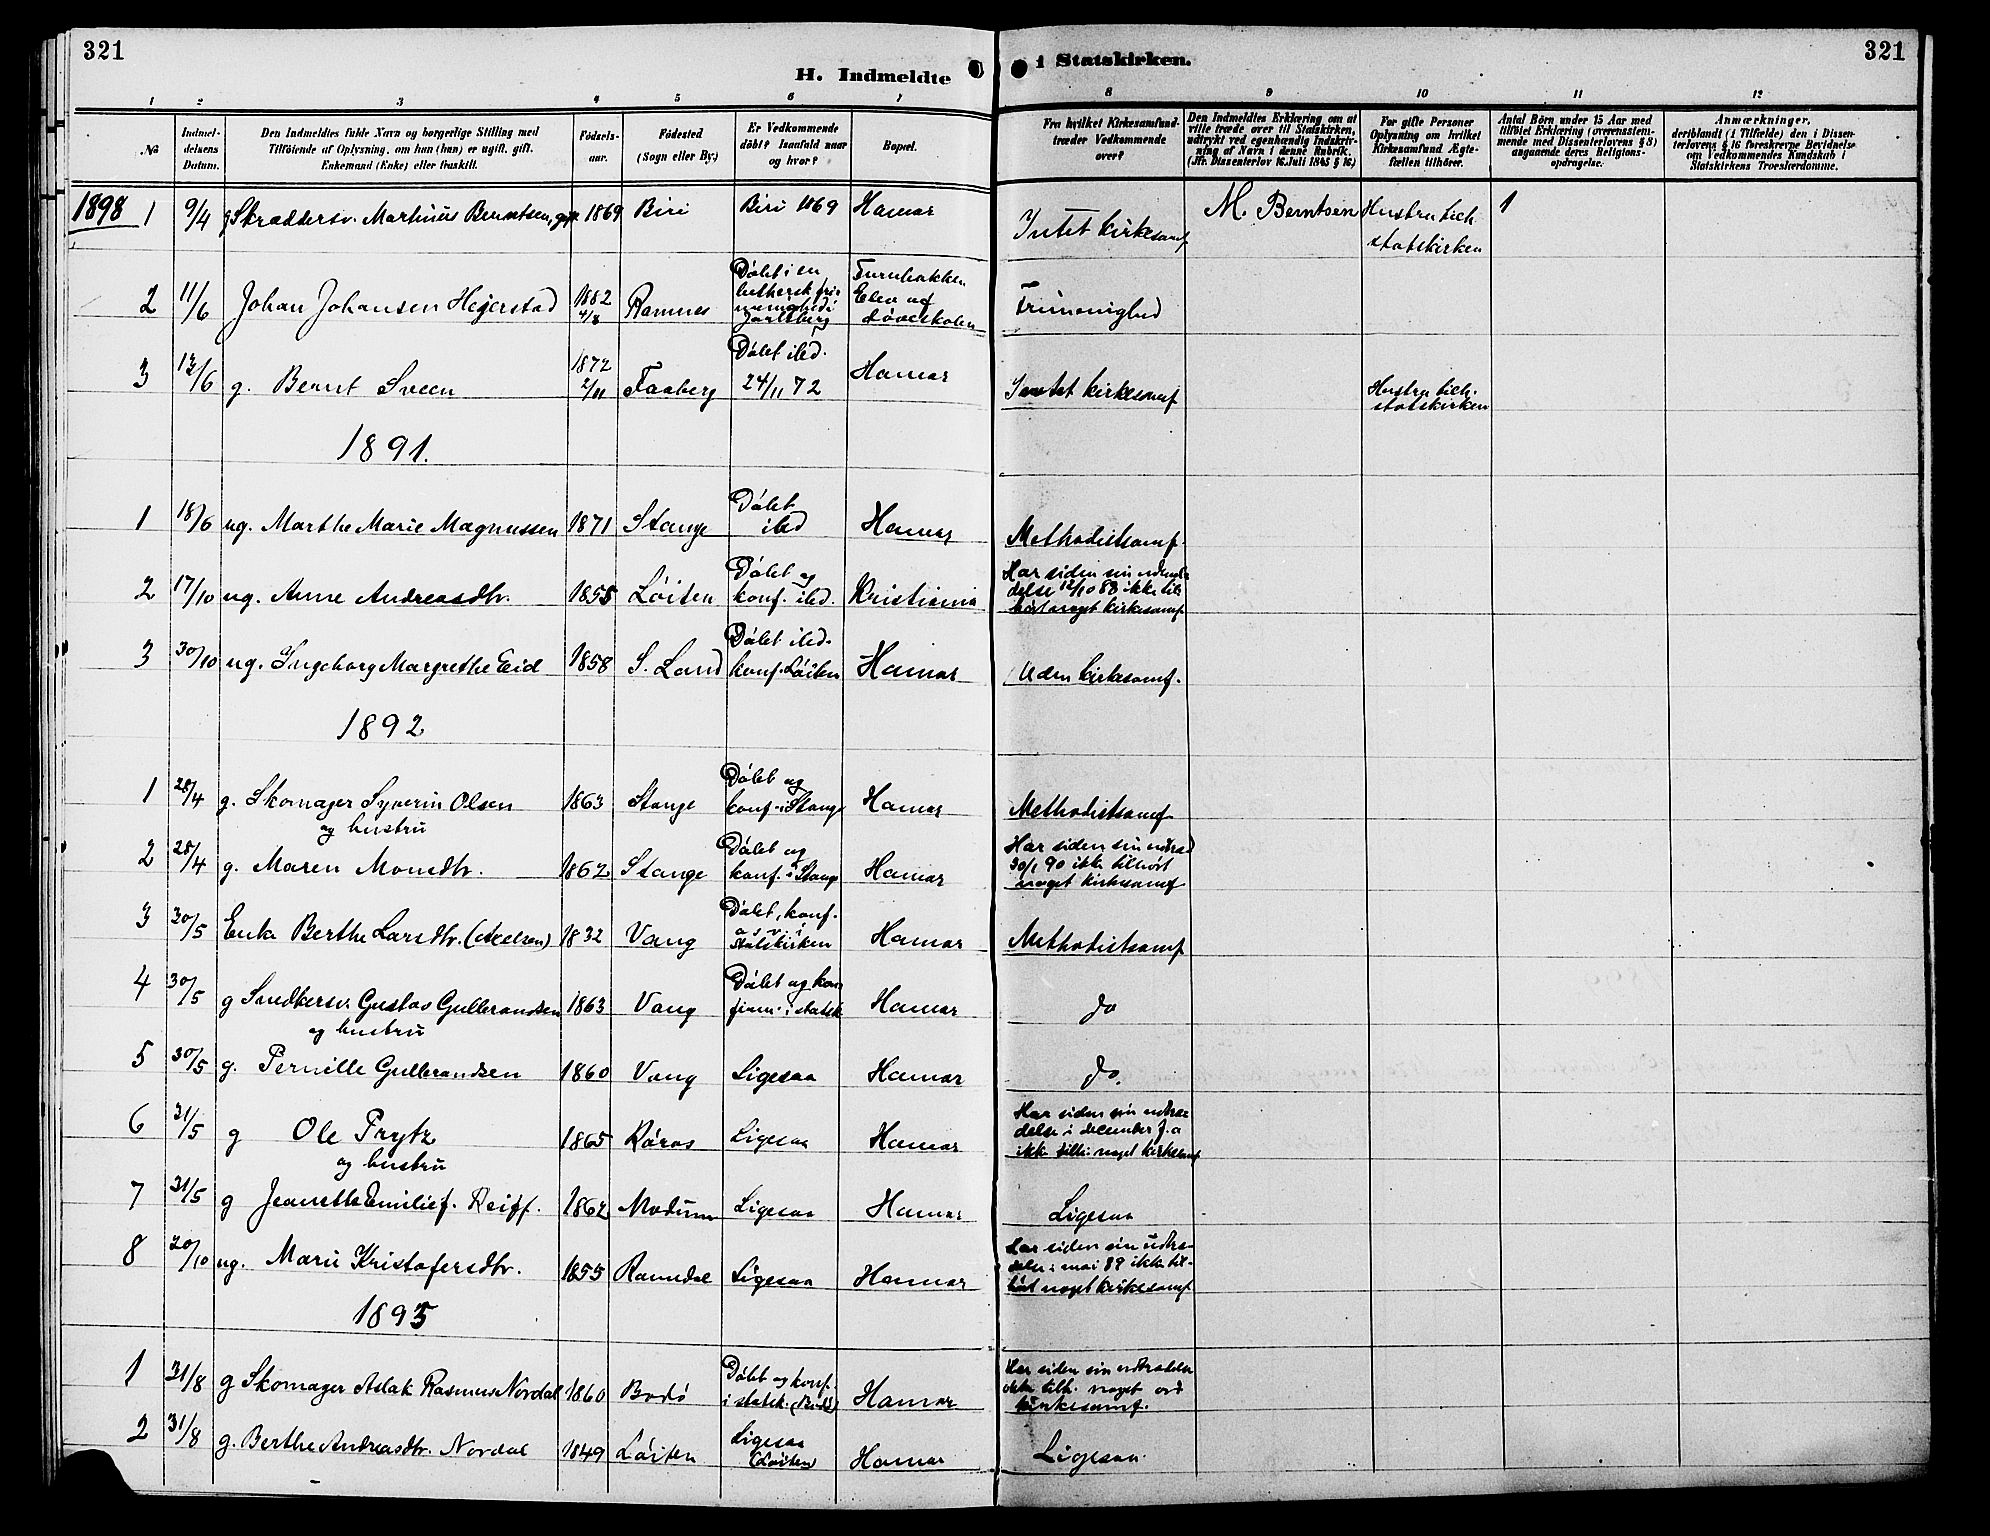 321
321
H. Indmeldte i Statskirken.
1 2 3 4 5 6 7 8 9 10 11 12
No
Indmel-
delsens
Datum.
Den Indmeldtes fulde Navn og borgerlige Stilling med
Tilföiende af Oplysning, om han (hun) er ugift, gift,
Enkemand (Enke) eller fraskilt.
Födsels-
aar.
Födested
(Sogn eller By.)
Er Vedkommende
döbt? Isaafald naar
og hvor?
Bopæl.
Fra hvilket Kirkesamfund
træder Vedkommende
over?
Den Indmeldtes Erklæring om at
ville træde over til Statskirken,
udtrykt ved egenhændig Indskriv-
ning af Navn i denne Rubrik.
(Jfr. Dissenterlov 16. Juli 1845 § 16.)
For gifte Personer
Oplysning om hvilket
Kirkesamfund Ægte-
fællen tilhörer.
Antal Börn under 15 Aar med
tilföiet Erklæring (overensstem-
mende med Dissenterlovens § 8)
angaaende deres Religions-
opdragelse.
Anmærkninger,
deriblandt (i Tilfælde) den i Dissen-
terlovens § 16 foreskrevne Bevidnelse
om Vedkommendes Kundskab i
Statskirkens Troeslærdomme.
1898 1 9/4 Skræddersv. Martinius Berntsen, 1869 Biri Biri 1869 Hamar Intet kirkesamf M. Berntsen Hustru tilh. statskirken 1
2 11/6 Johan Johansen Hegerstad 1882 4/8 Ramnes Döbt i en luthersk fri- menighed i Jarlsberg Furubakken Elev af döveskolen Frimenighed
3 12/6 g. Bernt Sveen 1872 2/11 Faaberg Döbt ibd. 24/11 72 Hamar Intet kirkesamf Hustru tilh. statskirken
1891.
1 18/6 ug. Marthe Marie Magnussen 1871 Stange Döbt ibd Hamar Methodistsamf.
2 17/10 ug. Anne Andreasdtr. 1855 Löiten Döbt og konf. ibd. Kristiania Har siden sin udtræ- delse 12/10 88 ikke til- hört noget kirkesamf
3 30/10 ug. Ingeborg Margrethe Eid 1858 S. Land Döbt ibd. konf. Löiten Hamar Uden kirkesamf.
1892
1 28/4 g. Skomager Syverin Olsen 1863 Stange Döbt og konf. i Stange Hamar Methodistsamf
og hustru
2 28/4 g. Maren Monsdtr. 1862 Stange Döbt og konf. i Stange Hamar Har siden sin udtræd 30/1 90 ikke tilhört noget kirkesamf
3 30/5 Enke Berthe Larsdtr. (Axelsen) 1832 Vang Döbt, konf. o.s.v. i Statskirken Hamar Methodistsamf
4 30/5 g Snedkersv. Gustav Gulbrandsen 1863 Vang Döbt og kon- firm. i statsk Hamar do
og hustru
5 30/5 g. Pernille Gulbrandsen 1860 Vang Ligesaa Hamar do.
6 31/5 g Ole Prytz 1865 Röros Ligesaa Hamar Har siden sin udtræ- delse i december f.a ikke tilh. noget kirkesamf
og hustru
7 31/5 g Jeanette Emilie f. Reiff. 1862 Modum Ligesaa Hamar Ligesaa
8 20/10 ug. Marie Kristofersdtr. 1855 Romedal Ligesaa Hamar Har siden sin udtræ- delse i mai 89 ikke til- hört noget kirkesamf
1895
1 31/8 g Skomager Aslak Rasmus Nordal 1860 Bodö Döbt og konf. i statsk. (Bodö) Hamar Har siden sin udtrædelse ikke tilh. noget kirkesamf.
2 31/8 g. Berthe Andreasdtr. Nordal 1849 Löiten Ligesaa (Löiten) Hamar Ligesaa